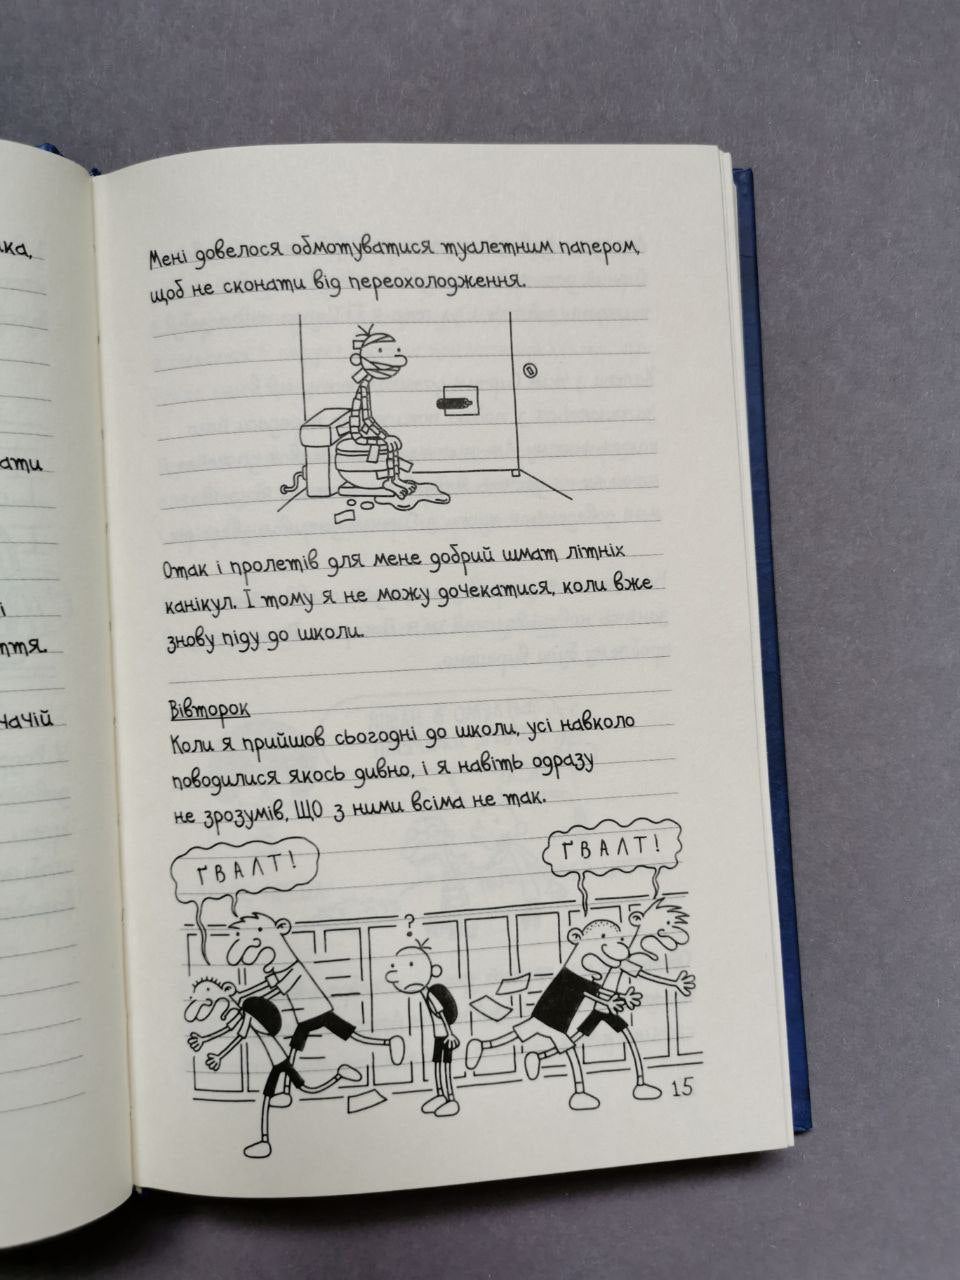 Мені довелося обмотуватися туалетним папером,
щоб не сконати від переохолодження.
Отак і пролетів для мене добрий шмат літніх
канікул. І тому я не можу дочекатися, коли вже
знову піду до школи.
Вівторок
Коли я прийшов сьогодні до школи, усі навколо
поводилися якось дивно, і я навіть одразу
не зрозумів, ЩО з ними всіма не так.
ҐВАЛТ!
ҐВАЛТ!
?
15